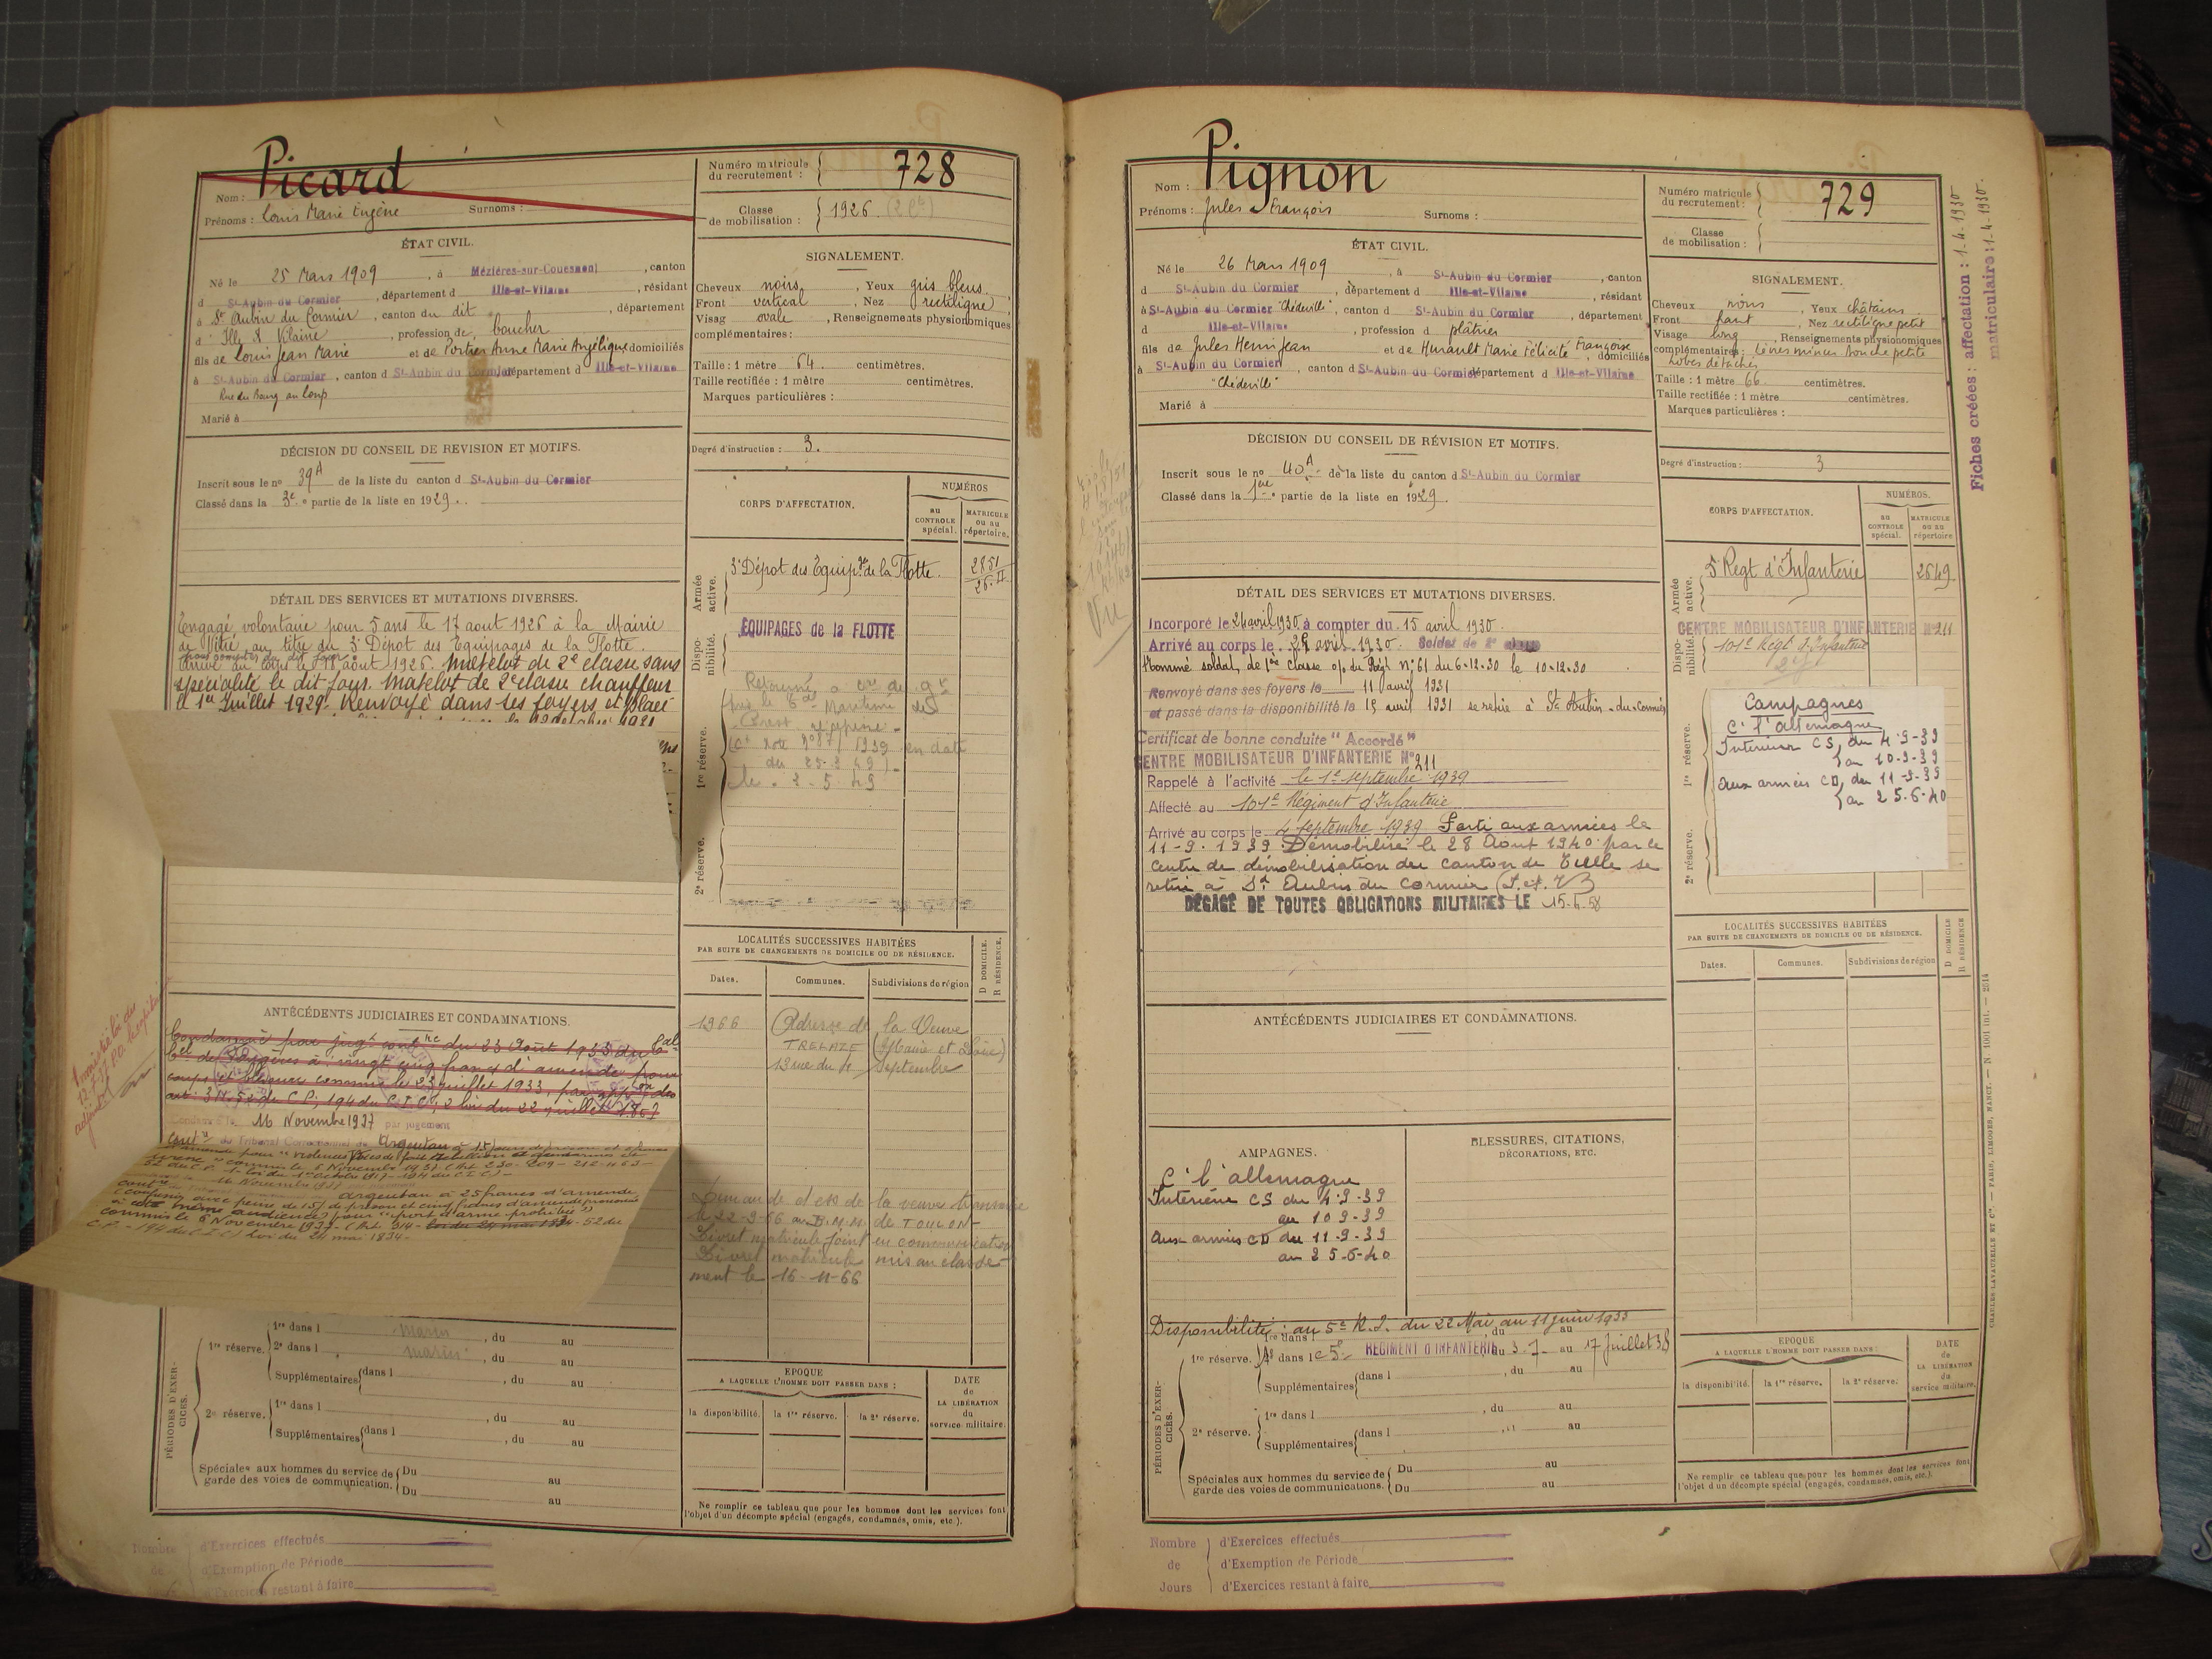 Picard
Nom :
Prénoms : Louis Marie Eugène Surnoms :
Numéro matricule du recrutement : 728
Classe de mobilisation : 1926
ÉTAT CIVIL.
Né le 25 Mars 1909, à Mézières-sur-Couesnon, canton
d St-Aubin du Cormier, département d Ille-et-Vilaine, résidant
à St Aubin du Cormier, canton du dit, département
d' Ille & Vilaine, profession de boucher
fils de Louis Jean Marie et de Portier Anne Marie Angélique domiciliés
à St-Aubin du Cormier, canton d St-Aubin du Cormier département d Ille-et-Vilaine
Rue du Bourg au loup
Marié à
SIGNALEMENT.
Cheveux noirs, Yeux gris bleus
Front vertical, Nez rectiligne
Visag ovale, Renseignements physionomiques
complémentaires :
Taille : 1 mètre 64 centimètres.
Taille rectifiée : 1 mètre centimètres.
Marques particulières :
Degré d'instruction : 3.
DÉCISION DU CONSEIL DE REVISION ET MOTIFS.
Inscrit sous le no 39 A de la liste du canton d St-Aubin du Cormier
Classé dans la 3e partie de la liste en 1929.
CORPS D'AFFECTATION.
NUMÉROS
AU CONTROLE spécial.
MATRICULE OU AU répertoire.
Armée active.
3e Dépôt des Equipges de la Flotte.
2851
26-II
Disponibilité.
ÉQUIPAGES de la FLOTTE
1re réserve.
2e réserve.
DÉTAIL DES SERVICES ET MUTATIONS DIVERSES.
Engagé volontaire pour 5 ans le 17 aout 1926 à la Mairie
de Vitré, au titre du 3e Dépôt des Equipages de la Flotte.
Arrivé au corps le 18 août 1926. Matelot de 2e classe sans
spécialité le dit jour. Matelot de 2e classe chauffeur
le 1er Juillet 1929. Renvoyé dans ses foyers et placé
ANTÉCÉDENTS JUDICIAIRES ET CONDAMNATIONS.
Condamné par jugt contre du 23 Août 1933 du Bal
Cel de Fougères à vingt cinq francs d'amende pour
coups et blessures commis le 23 juillet 1933, par app on des
16 Novembre 1937 par jugement
Argentan à 25 francs d'amende
commis le 6 Novembre 1937
loi du 24 mai 1834
LOCALITÉS SUCCESSIVES HABITÉES
PAR SUITE DE CHANGEMENTS DE DOMICILE OU DE RÉSIDENCE.
Dates. Communes. Subdivisions de région
D DOMICILE.
R RÉSIDENCE.
1966 Adresse de la Veuve
TRELAZE (Maine et Loire)
13 rue du 4 Septembre
Demande d' de la veuve transmise
le 22-9-66 au B.M.M. de TOULON
Livret matricule joint en communication
Livret matricule mis au classe-
ment le 16-11-66
PÉRIODES D'EXERCICES.
1re réserve.
1re dans l marin, du au
2e dans l marin, du au
Supplémentaires dans l , du au
2e réserve.
1re dans l , du au
Supplémentaires dans l , du au
Spéciales aux hommes du service de garde des voies de communication.
Du au
Du au
EPOQUE
A LAQUELLE L'HOMME DOIT PASSER DANS :
la disponibilité. la 1re réserve. la 2e réserve.
DATE de LA LIBÉRATION du service militaire.
Ne remplir ce tableau que pour les hommes dont les services font
l'objet d'un décompte spécial (engagés, condamnés, omis, etc.).
Nombre de Jours
d'Exercices effectués
d'Exemption de Période
d'Exercices restant à faire
Pignon
Nom :
Prénoms : Jules François Surnoms :
Numéro matricule du recrutement : 729
Classe de mobilisation :
ÉTAT CIVIL.
Né le 26 Mars 1909, à St-Aubin du Cormier, canton
d St-Aubin du Cormier, département d Ille-et-Vilaine, résidant
à St-Aubin du Cormier "Chédeville", canton d St-Aubin du Cormier, département
d Ille-et-Vilaine, profession d plâtrier
fils de Jules Henri Jean et de Hurault Marie Félicité Françoise, domiciliés
à St-Aubin du Cormier, canton d St-Aubin du Cormier département d Ille-et-Vilaine
"Chédeville"
Marié à
SIGNALEMENT.
Cheveux noirs, Yeux châtains
Front haut, Nez rectiligne petit
Visage long, Renseignements physionomiques
complémentaires : Lèvres minces bouche petite
lobes détachés
Taille : 1 mètre 66 centimètres.
Taille rectifiée : 1 mètre centimètres.
Marques particulières :
Degré d'instruction : 3
Fiches créées : affectation : 1-4-1930
matriculaire : 1-4-1930.
DÉCISION DU CONSEIL DE RÉVISION ET MOTIFS.
Inscrit sous le no 40 A de la liste du canton d St-Aubin du Cormier
Classé dans la 1ère partie de la liste en 1929.
CORPS D'AFFECTATION.
NUMÉROS.
AU CONTROLE spécial.
MATRICULE OU AU répertoire
Armée active.
5e Regt d'Infanterie 2649
Disponibilité.
CENTRE MOBILISATEUR D'INFANTERIE No 211
101e Régt d'Infanterie
1re réserve.
2e réserve.
Campagnes
C. l'Allemagne
Intérieur CS, du 4-9-39
au 10-9-39
Aux armées CD, du 11-9-39
au 25-6-40
Vu
DÉTAIL DES SERVICES ET MUTATIONS DIVERSES.
Incorporé le 24 avril 1930 à compter du 15 avril 1930.
Arrivé au corps le 24 avril 1930. Soldat de 2e classe
Nommé soldat de 1ère classe o/ du Régt no 61 du 6-12-30 le 10-12-30
Renvoyé dans ses foyers le 11 avril 1931
et passé dans la disponibilité le 15 avril 1931 se retire à St Aubin-du-Cormier
Certificat de bonne conduite "Accordé"
CENTRE MOBILISATEUR D'INFANTERIE No 211
Rappelé à l'activité le 1er septembre 1939
Affecté au 101e Régiment d'Infanterie
Arrivé au corps le 4 septembre 1939 Parti aux armées le
11-9-1939. Démobilisé le 28 Août 1940 par le
Centre de démobilisation du canton de Tulle se
retire à St Aubin du Cormier
DÉGAGÉ DE TOUTES OBLIGATIONS MILITAIRES LE 15-6-58
ANTÉCÉDENTS JUDICIAIRES ET CONDAMNATIONS.
LOCALITÉS SUCCESSIVES HABITÉES
PAR SUITE DE CHANGEMENTS DE DOMICILE OU DE RÉSIDENCE.
Dates. Communes. Subdivisions de région
D DOMICILE
R RÉSIDENCE
AMPAGNES.
C. l'Allemagne
Intérieur CS du 4-9-39
au 10 9-39
Aux armées CD du 11-9-39
au 25-6-40
BLESSURES, CITATIONS,
DÉCORATIONS, ETC.
Disponibilité : au 5e R.I. du 22 Mai au 11 juin 1933
PÉRIODES D'EXERCICES.
1re réserve.
1re dans l , du au
dans le 5e RÉGIMENT D'INFANTERIE du 3-7 au 17 juillet 38
Supplémentaires dans l , du au
2e réserve.
1re dans l , du au
Supplémentaires dans l , du au
Spéciales aux hommes du service de garde des voies de communications.
Du au
Du au
EPOQUE
A LAQUELLE L'HOMME DOIT PASSER DANS :
la disponibilité. la 1re réserve. la 2e réserve.
DATE de LA LIBÉRATION du service militaire.
Ne remplir ce tableau que pour les hommes dont les services font
l'objet d'un décompte spécial (engagés, condamnés, omis, etc.).
CHARLES-LAVAUZELLE ET Cie. — PARIS, LIMOGES, NANCY.
Nombre de Jours
d'Exercices effectués
d'Exemption de Période
d'Exercices restant à faire